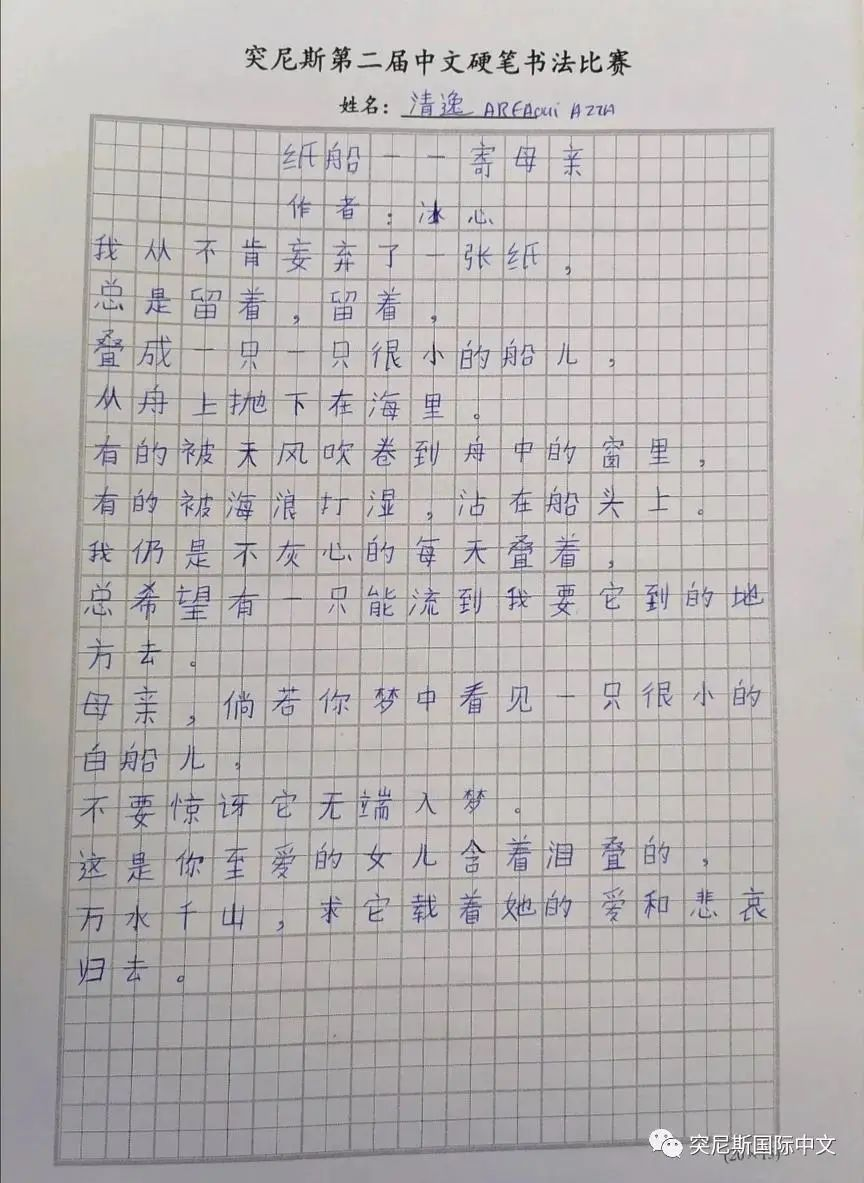 突尼斯第二届中文硬笔书法比赛
姓名：清逸 AREAOUI AZZA
纸船——寄母亲
作者：冰心
我从不肯妄弃了一张纸，
总是留着，留着，
叠成一只一只很小的船儿，
从舟上抛下在海里。
有的被天风吹卷到舟中的窗里，
有的被海浪打湿，沾在船头上。
我仍是不灰心的每天叠着，
总希望有一只能流到我要它到的地
方去。
母亲，倘若你梦中看见一只很小的
白船儿，
不要惊讶它无端入梦。
这是你至爱的女儿含着泪叠的，
万水千山，求它载着她的爱和悲哀
归去。
突尼斯国际中文